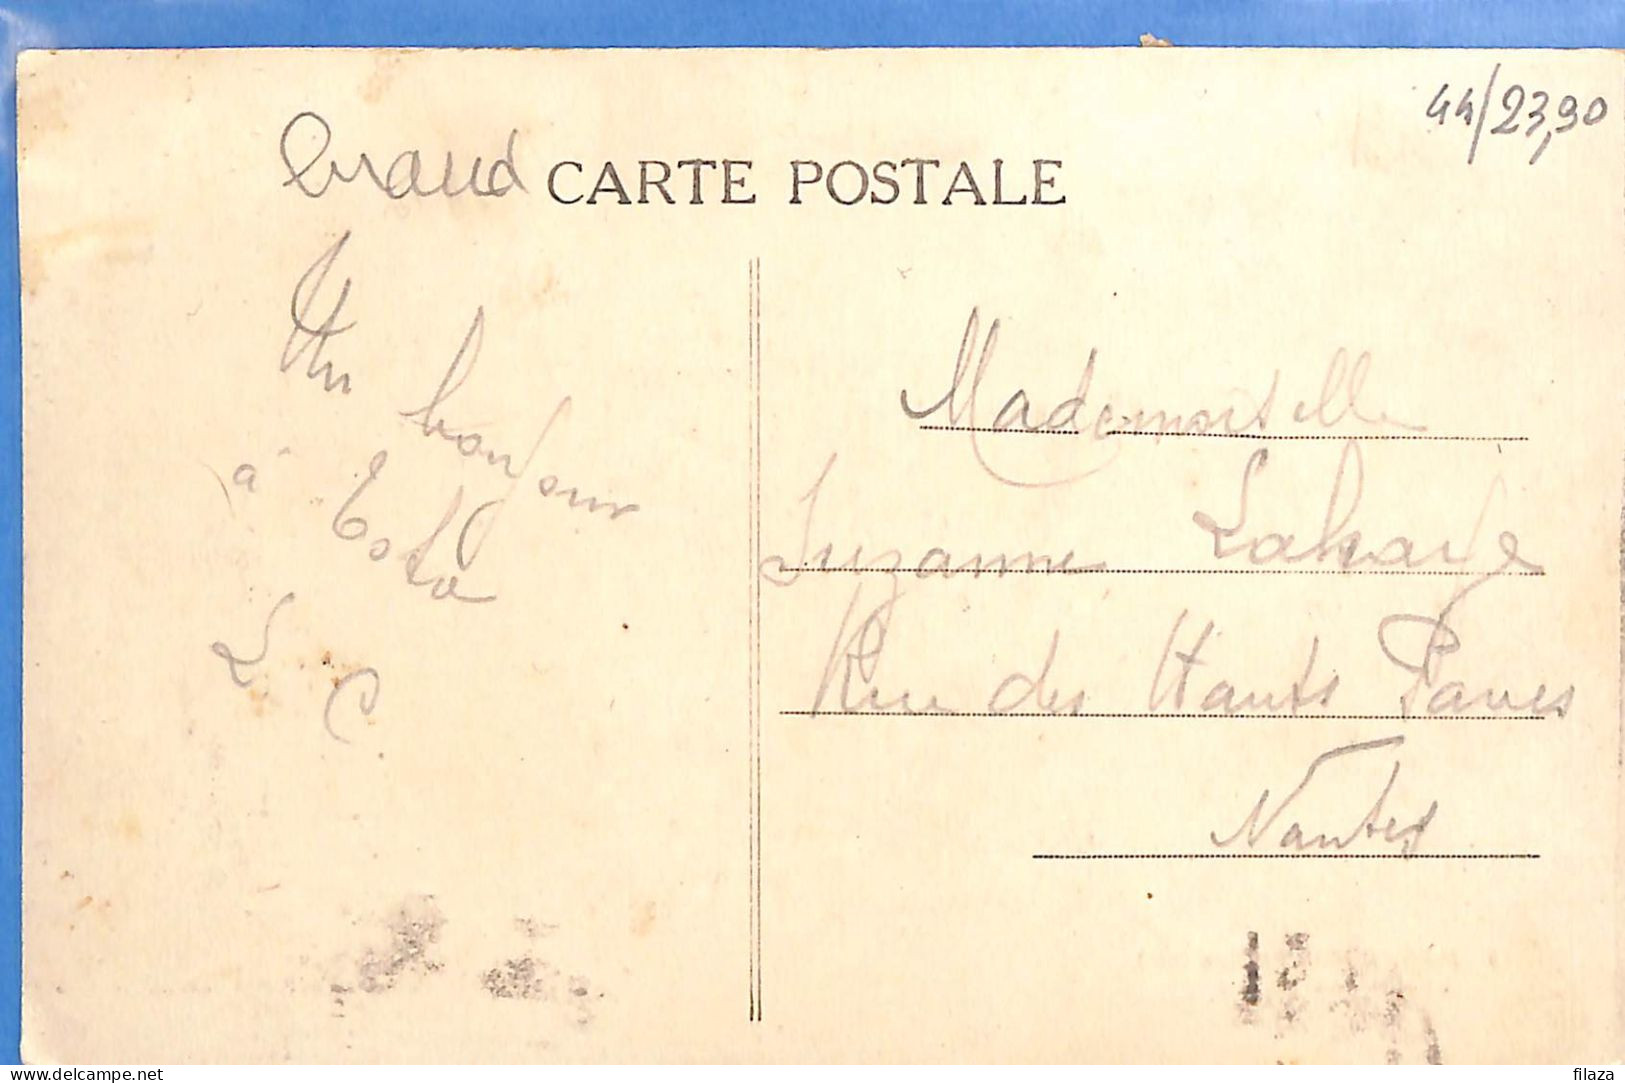 44/23,90
CARTE POSTALE
Un bonjour
à Toto
L C
Mademoiselle
Suzanne
Rue des Hauts Paves
Nantes
www.delcampe.net
filaza